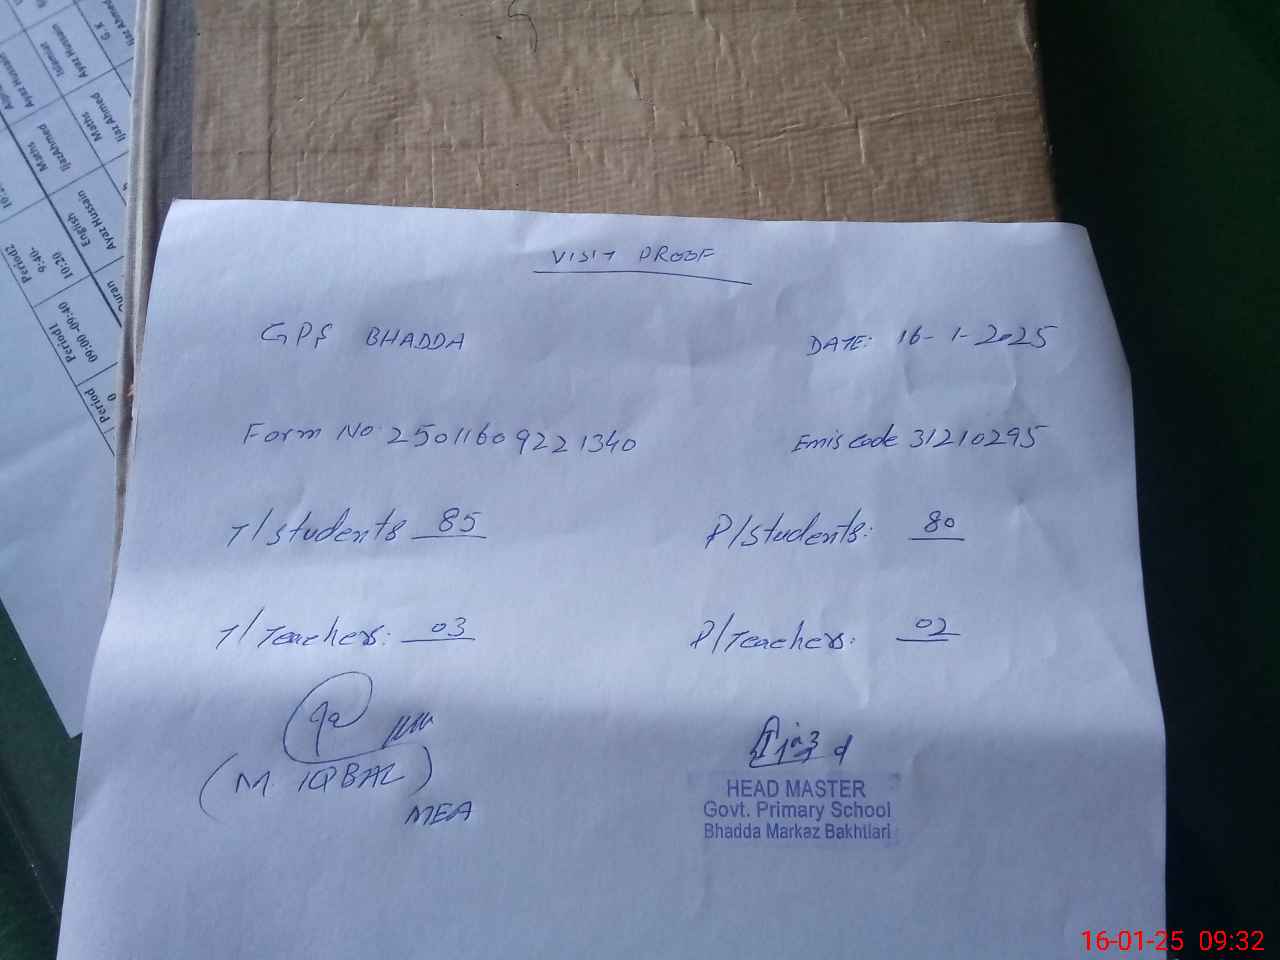 VISIT PROOF
GPS BHADDA DATE: 16-1-2025
Form No. 25011609221340 Emis code 31210295
T/students 85 P/students: 80
T/Teachers: 03 P/Teachers: 02
(M. IQBAL)
MEA
HEAD MASTER
Govt. Primary School
Bhadda Markaz Bakhtiari
Period 0
Period1 09:00-09:40
Period2 9:40- 10:20
Quran
English Ayaz Hussain
Maths IjazAhmed
Maths Ijaz Ahmed
Islamiat Ayaz Hussain
Ayaz Hussain
G.K Ijaz Ahmed
16-01-25 09:32